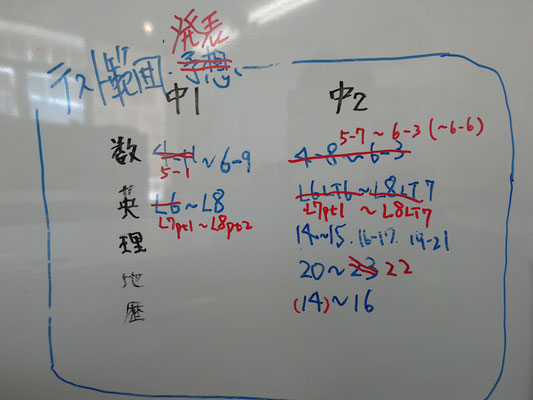 発表
テスト範囲 予想
中1 中2
5-7~6-3(~6-6)
数 4-1~6-9 4-8~6-3
5-1
英 L6~L8 L6LT6~L8LT7
L7pt1~L8pt2 L7pt1~L8LT7
理 14~15. 16-17. 19-21
地 20~23 22
歴 (14)~16